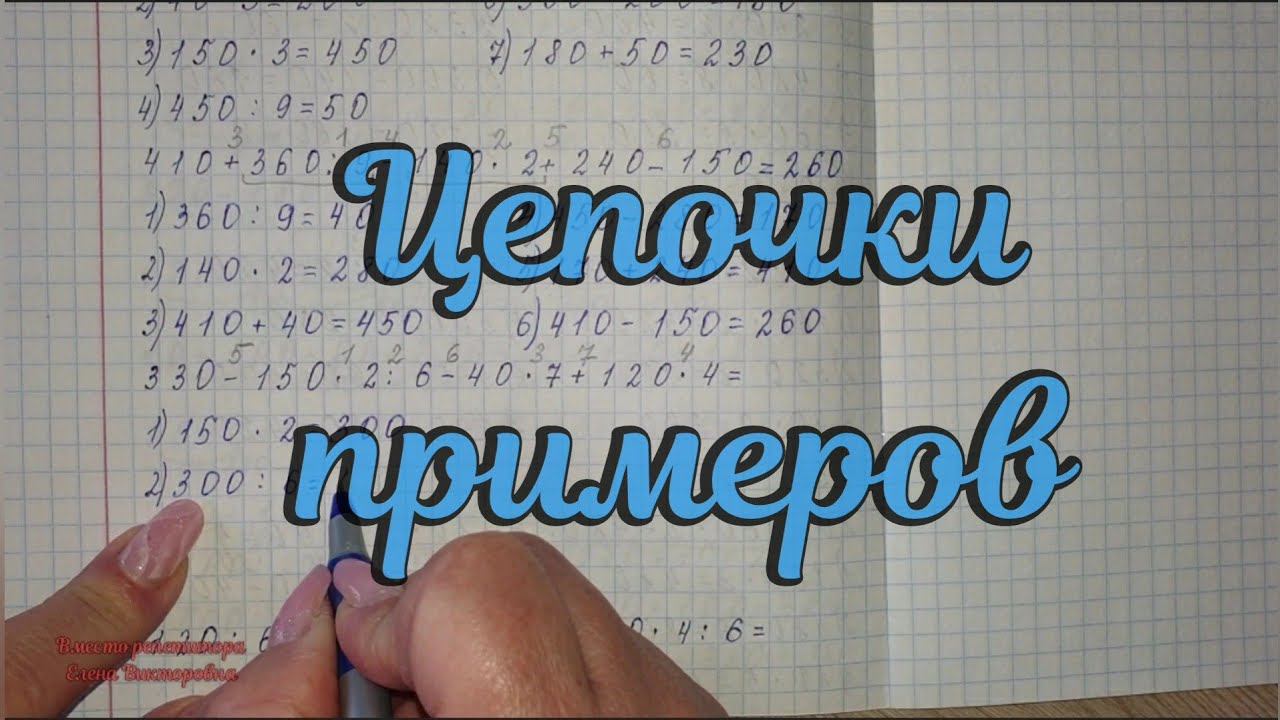 3) 150 · 3 = 450 7) 180 + 50 = 230
4) 450 : 9 = 50
3 1 4 2 5 6
410 + 360 : 9 140 · 2 + 240 - 150 = 260
1) 360 : 9 = 40 4) 450 - 280 = 170
2) 140 · 2 = 280 5) 170 + 240 = 410
3) 410 + 40 = 450 6) 410 - 150 = 260
5 1 2 6 3 7 4
330 - 150 · 2 : 6 - 40 · 7 + 120 · 4 =
1) 150 · 2 = 300
2) 300 : 6 =
0 · 4 : 6 =
Цепочки
примеров
Вместо репетитора
Елена Викторовна